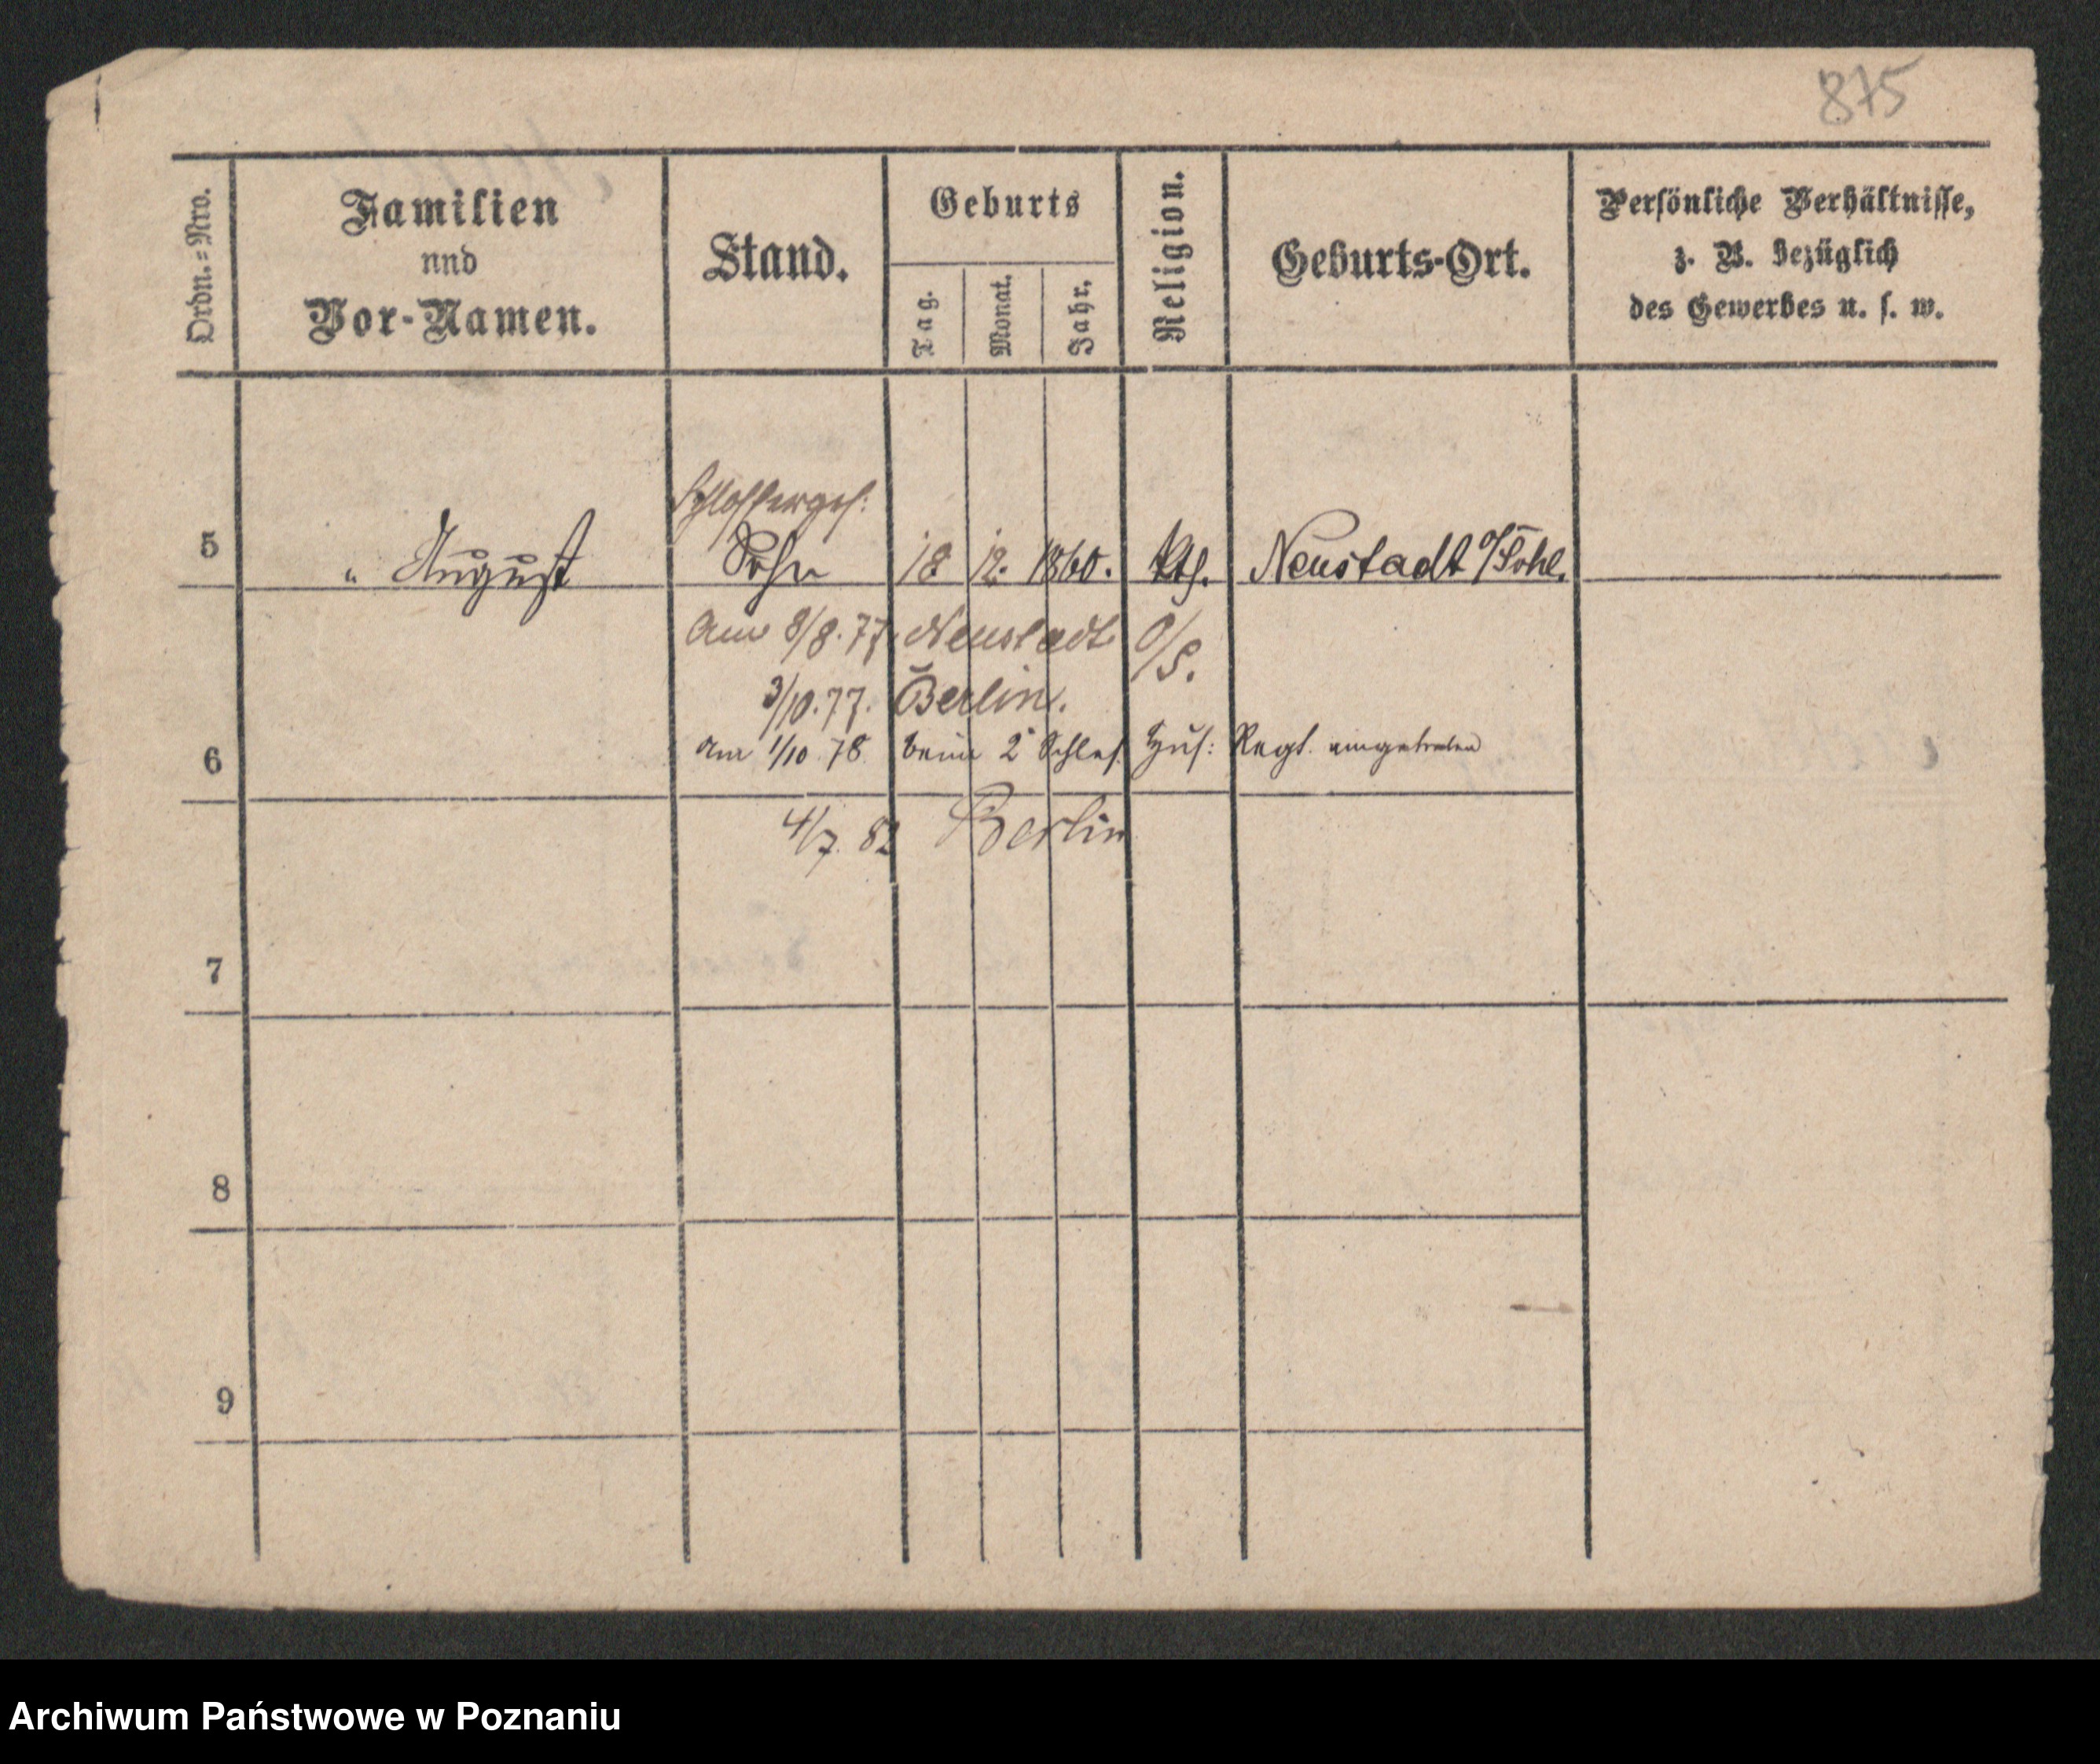 875
Ordn.-Nro.
Familien
und
Vor-Namen.
Stand.
Geburts
Tag.
Monat.
Jahr.
Religion.
Geburts-Ort.
Persönliche Verhältnisse,
z. B. bezüglich
des Gewerbes u. s. w.
Schlosserges:
5 " August Sohn 18 12. 1860. kth. Neustadt O/Schl.
Am 8/8. 77. Neustadt O/S.
3/10. 77. Berlin.
6
Am 1/10 78 beim 2' Schles. Hus: Regt. eingetreten
4/7. 82 Berlin
7
8
9
Archiwum Państwowe w Poznaniu